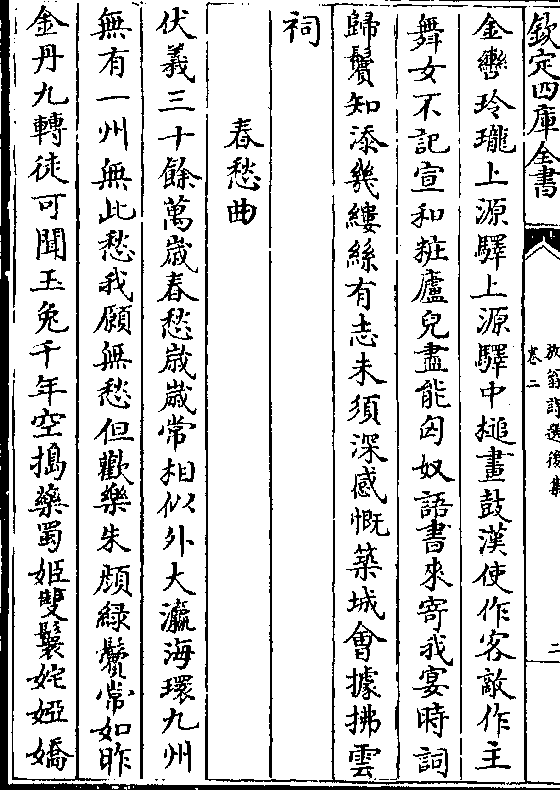 欽定四庫全書
放翁詩選後集
卷二
二
金轡玲瓏上源驛上源驛中槌畫鼓漢使作客敵作主
舞女不記宣和粧廬兒盡能匈奴語書來寄我宴時詞
歸鬢知添幾縷絲有志未須深感慨築城會據拂雲
祠
春愁曲
伏羲三十餘萬歳春愁歳歳常相似外大瀛海環九州
無有一州無此愁我願無愁但歡樂朱顔緑鬢常如昨
金丹九轉徒可聞玉兔千年空搗藥蜀姬雙鬟姹婭嬌